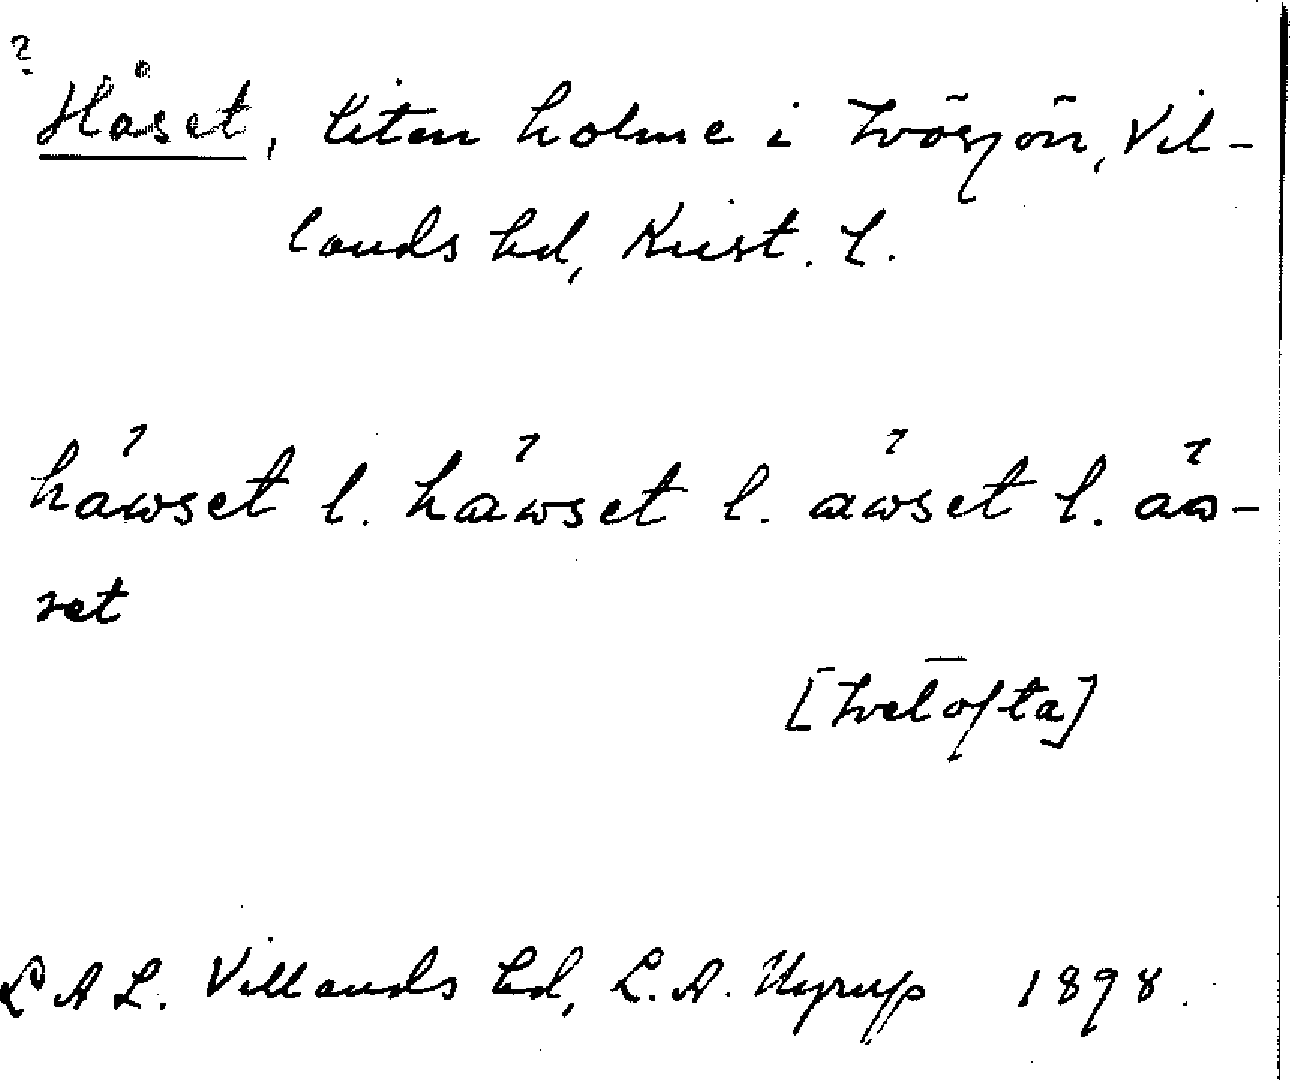 ?
Håset, liten holme i Ivösjön, Vil-
lands hd, Krist. l.
håwset l. håwset l. åwset l. åw-
set
[Ivetofta]
L A L. Villands hd, L. A. Nyrup 1898.